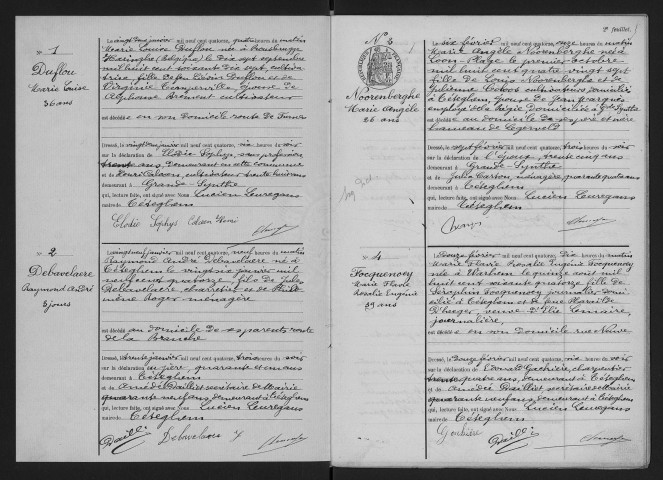 N° 1
Duflou
Marie Louise
36 ans
Le vingt deux janvier mil neuf cent quatorze, quatre heures du matin
Marie Louise Duflou née à
Haringhe (Belgique) le dix sept septembre
mil huit cent soixante dix sept, cultiva
trice, fille de feu Désiré Duflou et de
Virginie épouse de
Alphonse cultivateur
est décédée en son domicile route de Furnes
Dressé, le vingt deux janvier mil neuf cent quatorze, dix heures du matin
sur la déclaration de Elodie Sophys, sans profession
trente ans, demeurant en cette Commune
et de Henri Colsoen, cultivateur trente huit ans
demeurant à Grande-Synthe
qui, lecture faite, ont signé avec Nous Lucien Leuregans
maire de Téteghem
Elodie Sophys Colsoen Henri
N° 2
Debavelaere
Raymond André
3 jours
Le vingt neuf janvier mil neuf cent quatorze, neuf heures du matin
Raymond André Debavelaere né à
Téteghem le vingt six janvier mil
neuf cent quatorze, fils de Jules
Debavelaere charretier et de Philo
mène Roger ménagère
est décédé au domicile de ses parents route
de la Branche
Dressé, le trente janvier mil neuf cent quatorze, trois heures du soir
sur la déclaration du père, quarante et un ans
demeurant à Téteghem
et de Amédée Dailliet secrétaire de Mairie
quarante neuf ans, demeurant à Téteghem
qui, lecture faite, ont signé avec Nous Lucien Leuregans
maire de Téteghem
Debavelaere J
2e feuillet.
N° 3
Noorenberghe
Marie Angèle
26 ans
Le six février mil neuf cent quatorze, onze heures du matin
Marie Angèle Noorenberghe née à
Loon-Plage le premier octobre
mil huit cent quatre vingt sept
fille de Louis Noorenberghe et de
Julienne cultivateurs domiciliés
à Téteghem, épouse de Jean Marquis
employé de la Régie domiciliés à Gde Synthe
est décédée au domicile de ses père et mère
hameau de
Dressé, le sept février mil neuf cent quatorze, trois heures du soir
sur la déclaration de l'époux, trente cinq ans
demeurant à Grande-Synthe
et de Julia Carton, ménagère, quarante quatre ans
demeurant à Téteghem
qui, lecture faite, ont signé avec Nous Lucien Leuregans
maire de Téteghem
N° 4
Focquenoey
Marie Flavie
Rosalie Eugénie
39 ans
Le douze février mil neuf cent quatorze, dix heures du matin
Marie Flavie Rosalie Eugénie Focquenoey
née à Warhem le quinze août mil
huit cent soixante quatorze, fille de
Séraphin Focquenoey journalier domi
cilié à Téteghem et de feue Marie
veuve d'Elie Lemaire,
journalière,
est décédée en son domicile rue Neuve
Dressé, le douze février mil neuf cent quatorze, six heures du soir
sur la déclaration de Edouard charpentier
trente quatre ans, demeurant à Téteghem
et de Amédée Dailliet secrétaire de Mairie
quarante neuf ans, demeurant à Téteghem
qui, lecture faite, ont signé avec Nous Lucien Leuregans
maire de Téteghem